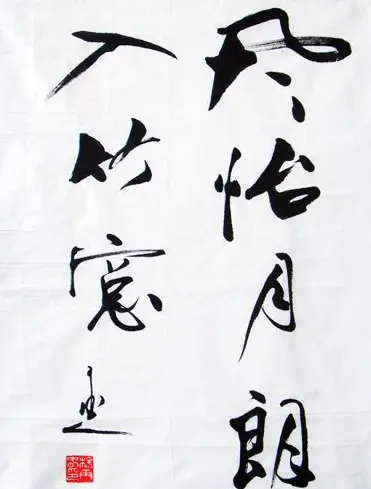 风怡月朗
入竹窗